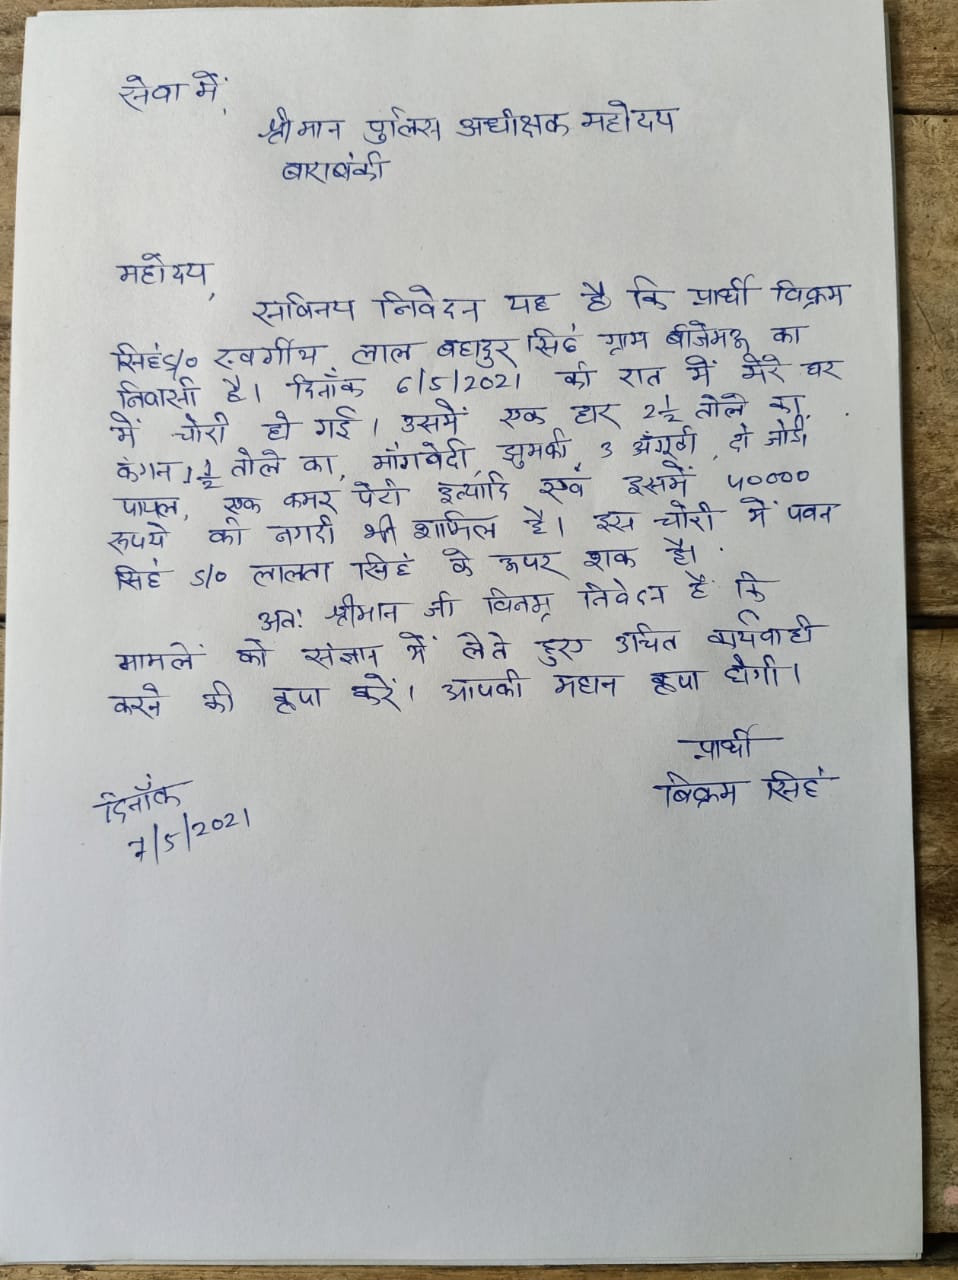 सेवा में,
श्रीमान पुलिस अधीक्षक महोदय
बाराबंकी
महोदय,
सविनय निवेदन यह है कि प्रार्थी विक्रम
सिहं S/O स्वर्गीय लाल बहादुर सिहं ग्राम बीजेमऊ का
निवासी है। दिनाँक 6/5/2021 की रात में मेरे घर
में चोरी हो गई। उसमें एक हार 2½ तोले का,
कंगन 1½ तोले का, मांगवेदी, झुमकी, 3 अंगूठी, दो जोडी
पायल, एक कमर पेटी इत्यादि एवं इसमें 50000
रूपये की नगदी भी शामिल है। इस चोरी में पवन
सिहं S/O लालता सिहं के ऊपर शक है।
अतः श्रीमान जी विनम्र निवेदन है कि
मामलें को संज्ञान में लेते हुए उचित कार्यवाही
करने की कृपा करें। आपकी महान कृपा होगी।
प्रार्थी
बिक्रम सिहं
दिनाँक
7/5/2021